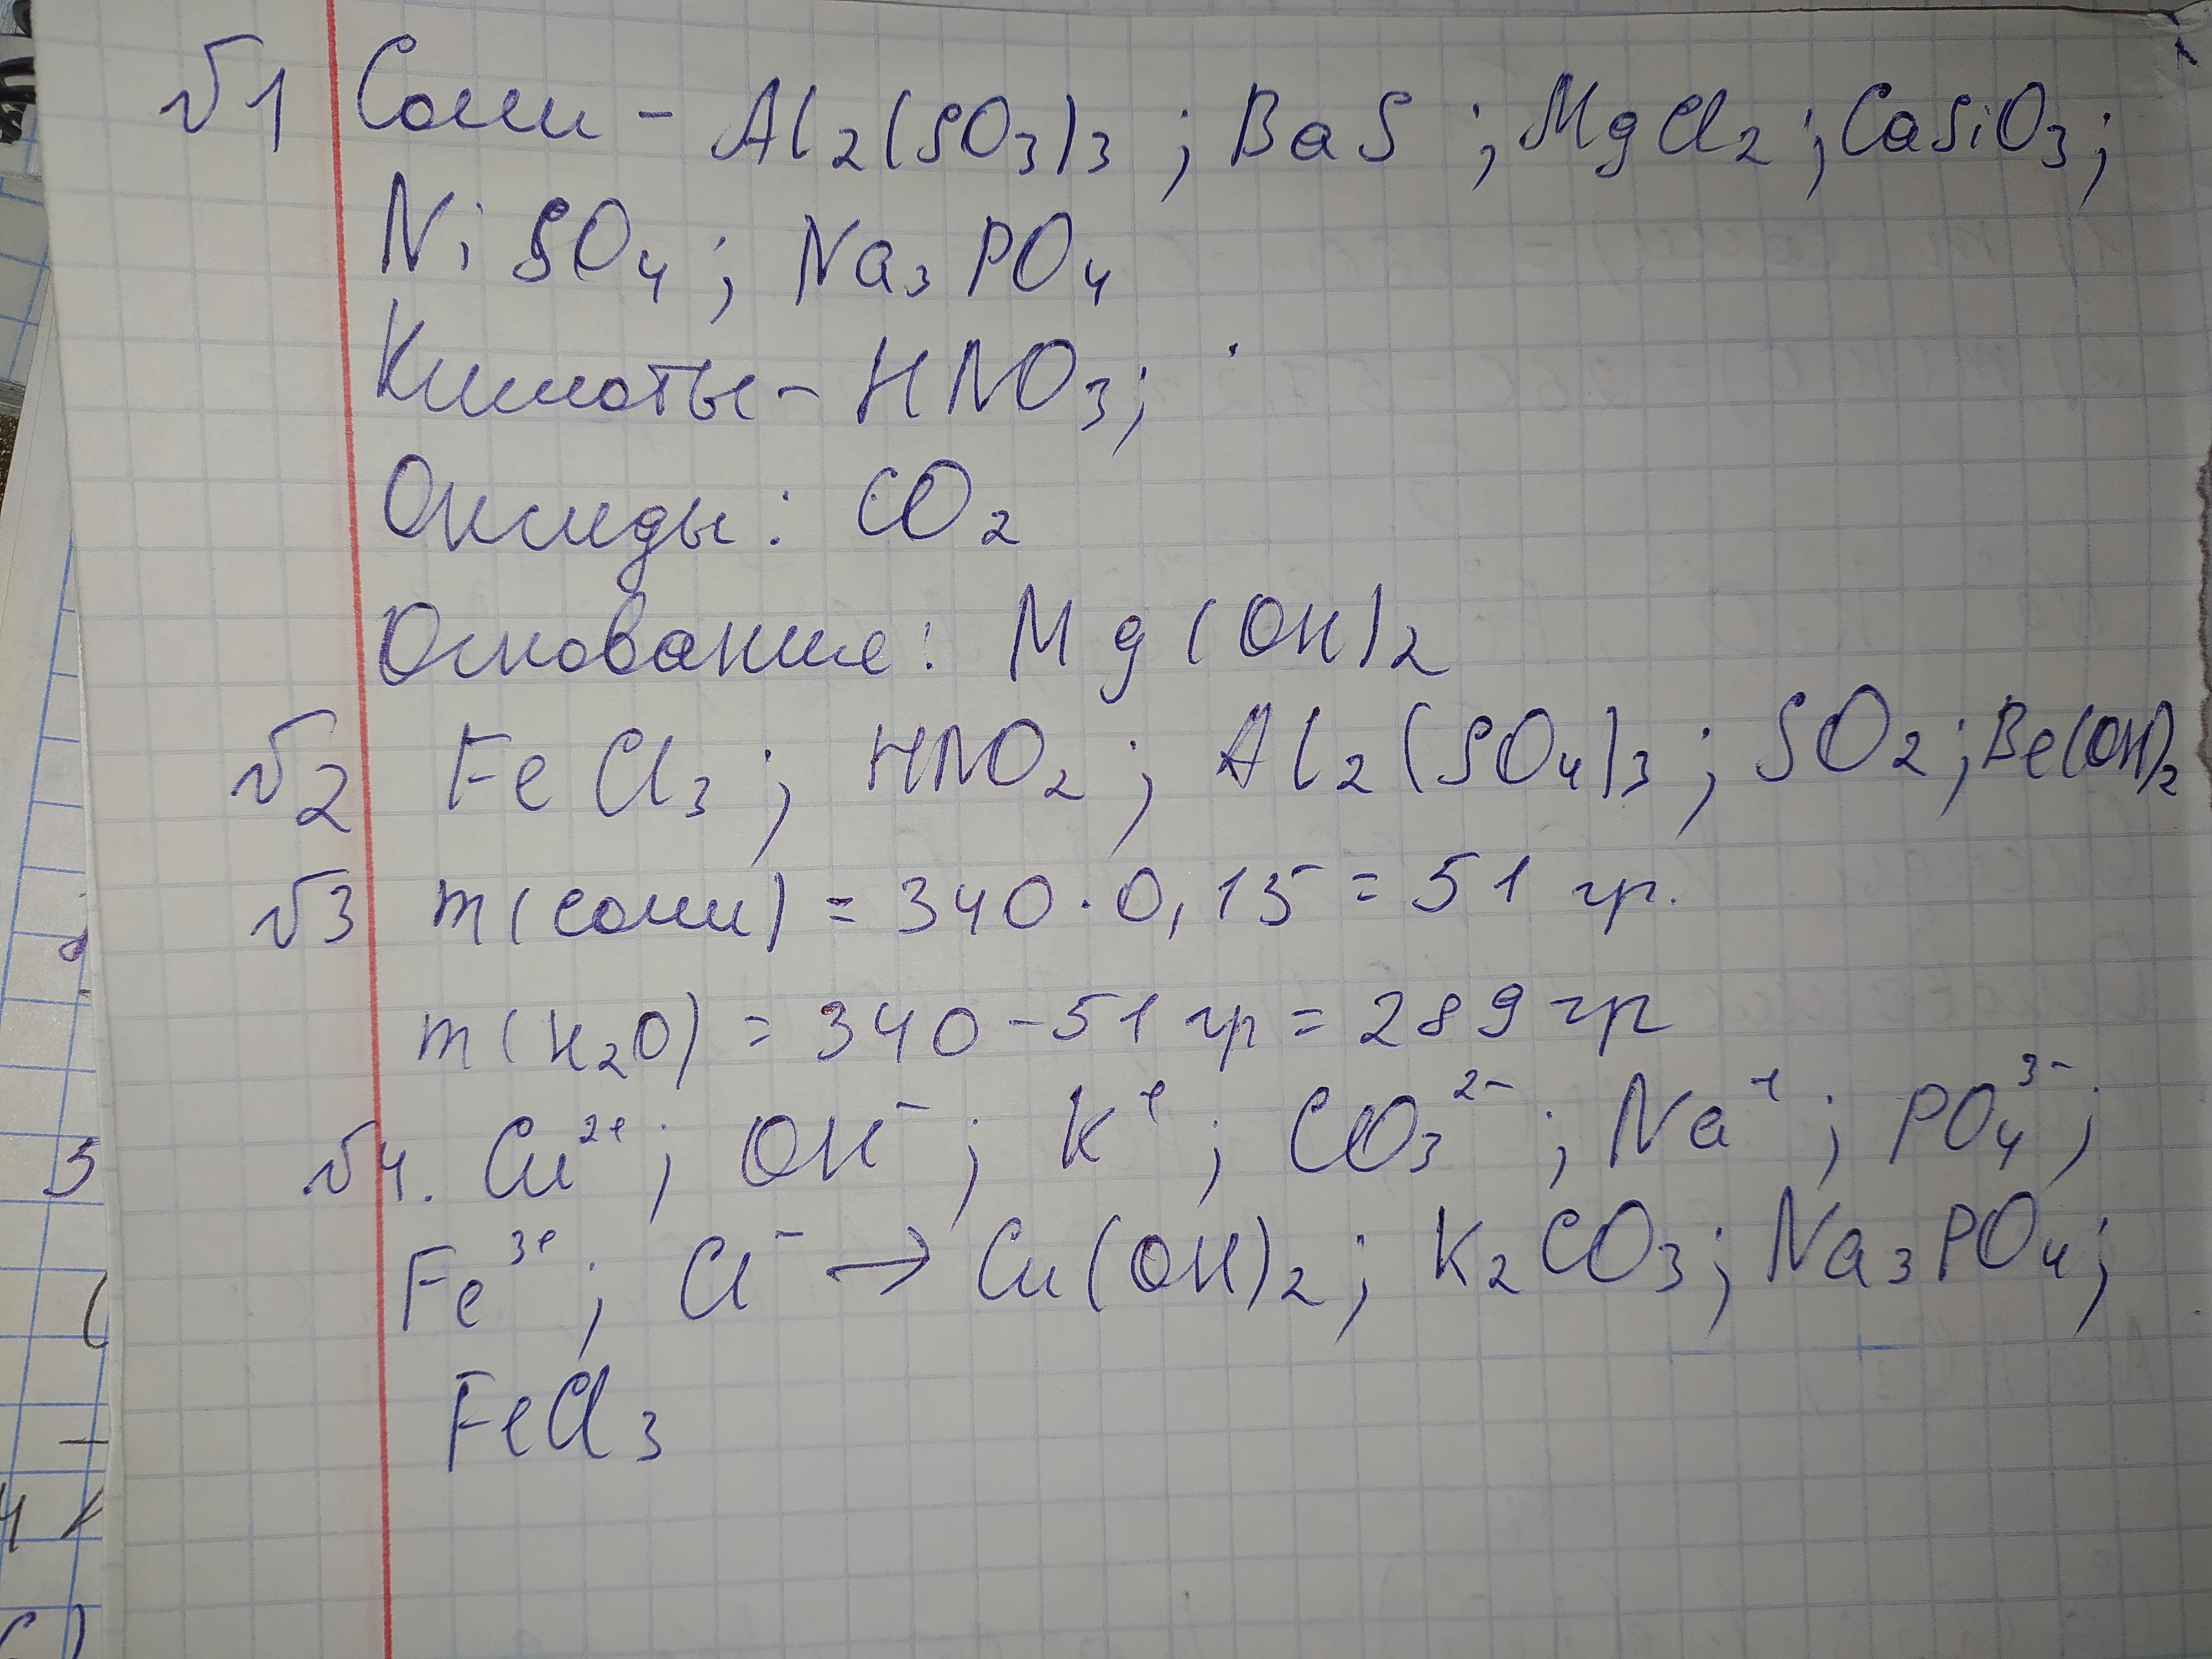 №1 Соли - Al₂(SO₃)₃ ; BaS ; MgCl₂ ; CaSiO₃ ;
NiSO₄ ; Na₃PO₄
Кислоты - HNO₃ ;
Оксиды : CO₂
Основание : Mg(OH)₂
№2 FeCl₃ ; HNO₂ ; Al₂(SO₄)₃ ; SO₂ ; Be(OH)₂
№3 m(соли) = 340 · 0,15 = 51 гр.
m(H₂O) = 340 - 51 гр = 289 гр
№4. Cu²⁺ ; OH⁻ ; K⁺ ; CO₃²⁻ ; Na⁺ ; PO₄³⁻ ;
Fe³⁺ ; Cl⁻ → Cu(OH)₂ ; K₂CO₃ ; Na₃PO₄ ;
FeCl₃